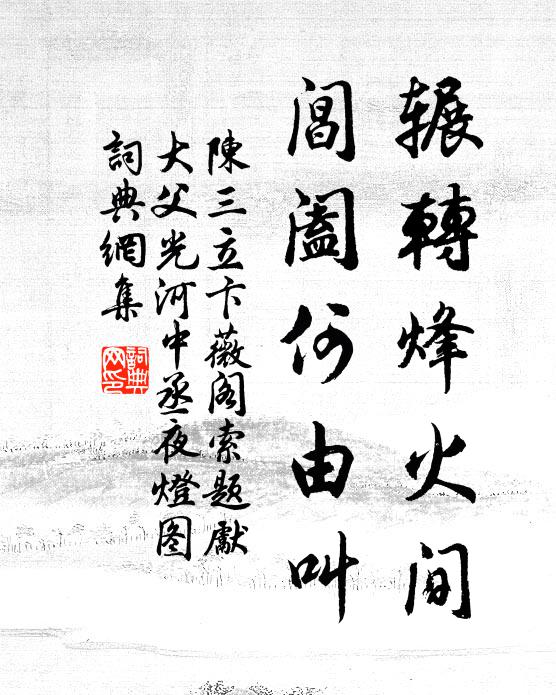 辗轉烽火间
閶阖何由叫
陳三立卞薇阁索题獻
大父光河中丞夜燈图
詞典網集
詞典网印